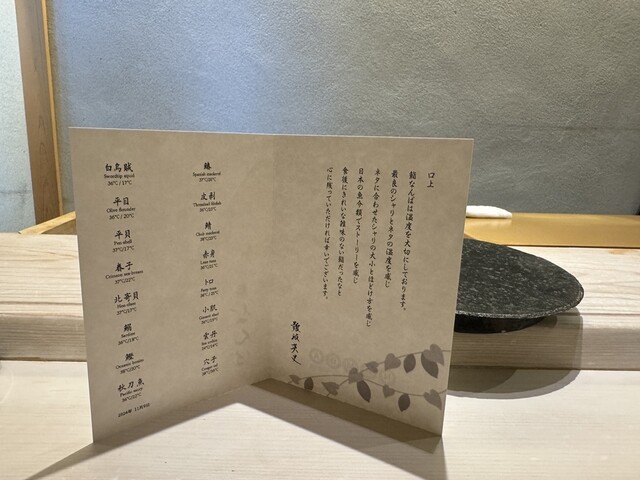 白烏賊
Swordtip squid
36℃ / 17℃
平目
Olive flounder
36℃ / 20℃
平貝
Pen shell
37℃/17℃
春子
Crimson sea-bream
37℃/22℃
北寄貝
Hen clam
37℃/17℃
鰯
Sardine
36℃/18℃
鰹
Oceanic bonito
38℃/20℃
秋刀魚
Pacific saury
36℃/12℃
鰆
Spanish mackerel
37℃/20℃
鯖
Chub mackerel
赤身
Lean tuna
トロ
Fatty tuna
小肌
Gizzard shad
雲丹
Sea urchin
穴子
Conger eel
口上
鮨なんばは温度を大切にしております。
最良のシャリとネタの温度を感じ
ネタに合わせたシャリの大小とほどけ方を感じ
日本の魚介類でストーリーを感じ
食後にきれいな雑味のない鮨だったなと
心に残っていただければ幸いでございます。
難波英史